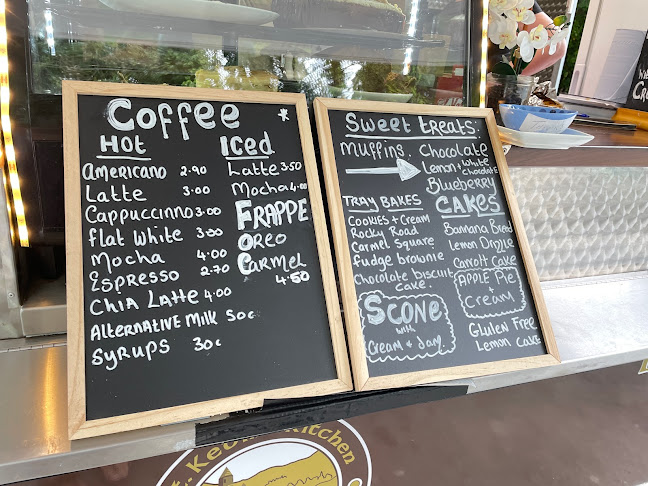 Coffee *
Hot
Americano 2.90
Latte 3.00
Cappuccinno 3.00
Flat White 3.00
Mocha 4.00
Espresso 2.70
Chia Latte 4.00
Alternative Milk 50c
Syrups 30c
Iced
Latte 3.50
Mocha 4.00
Frappe
Oreo
Carmel
4.50
Sweet treats:
Muffins. Chocolate
Lemon + White
Chocolate
Blueberry
Tray Bakes
Cookies + Cream
Rocky Road
Carmel Square
fudge brownie
Chocolate biscuit
cake.
Scone
with
Cream & Jam
Cakes
Banana Bread
Lemon Drizzle
Carott Cake
Apple Pie
+
Cream
Gluten Free
Lemon Cake
Kitchen